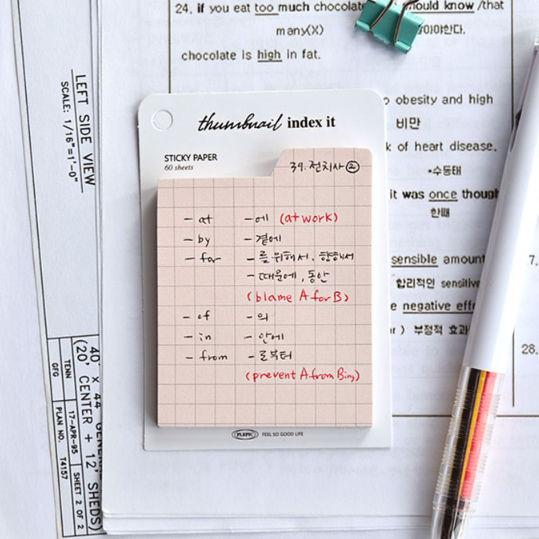 24. if you eat too much chocolate
should know /that
many(X)
chocolate is high in fat.
obesity and high
비만
k of heart disease.
•수동태
it was once though
한때
sensible amount
합리적인 sensitive
e negative effe
부정적 효과
7.
28.
LEFT SIDE VIEW
SCALE: 1/16"=1'-0"
40' x 44'
(20' CENTER + 12' SHEDS)
TENN
GFO
17-APR-95
SHEET 2 OF 2
PLAN NO.
T4157
thumbnail index it
STICKY PAPER
60 sheets
34. 전치사 ②
- at - 에 (at work)
- by - 곁에
- for - 를 위해서, 향해서
- 때문에, 동안
(blame A for B)
- of - 의
- in - 안에
- from - 로부터
(prevent A from Bing)
PLEPIC FEEL SO GOOD LIFE